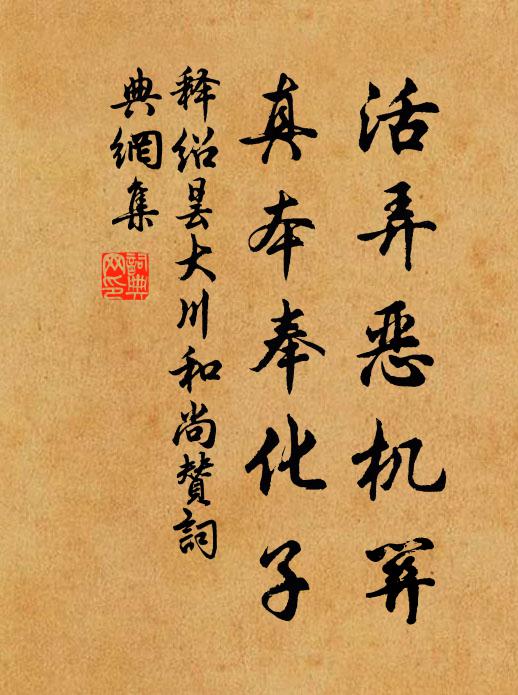 活弄恶机关
真本奉化子
释绍昙大川和尚赞詞
典網集
詞典
网印